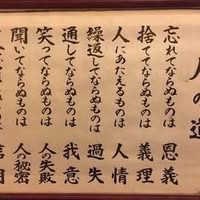 人の道
忘れてならぬものは 恩義
捨ててならぬものは 義理
人にあたえるものは 人情
繰返してならぬものは 過失
通してならぬものは 我意
笑ってならぬものは 人の失敗
聞いてならぬものは 人の秘密